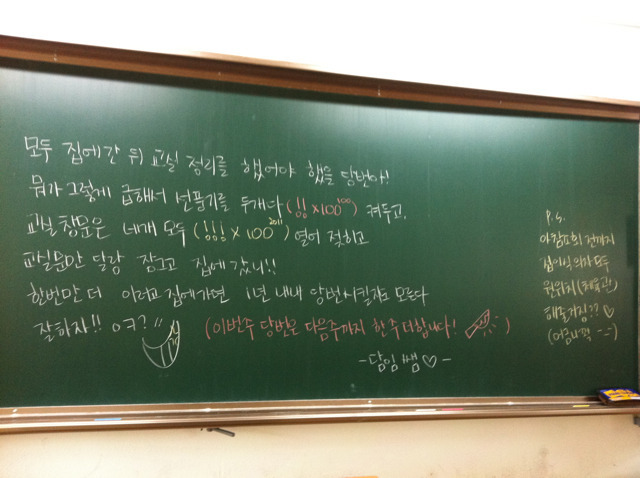 모두 집에 간 뒤 교실 정리를 했어야 했을 당번아!
뭐가 그렇게 급해서 선풍기를 두개다 (!! × 100¹⁰⁰) 켜두고,
교실 창문은 네개 모두 (!!! × 100²⁰¹¹) 열어 젖히고
교실문만 달랑 잠그고 집에 갔니!!
한번만 더 이러고 집에가면 1년 내내 당번시킬지도 모른다
잘하자!! ㅇㅋ?
(이번주 당번은 다음주까지 한 주 더 합니다! )
-담임 쌤♡-
P.S.
아침조회 전까지
접이식 의자 모두
원위치(체육관)
해놓기징?? ♡
(어흠 -_-)